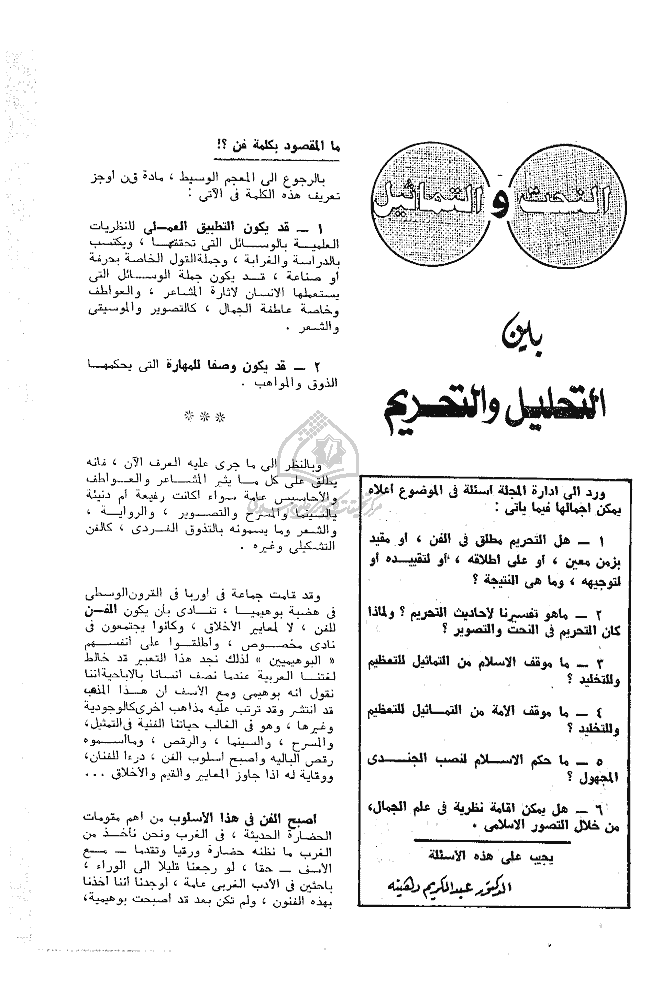 النحت و التماثيل
بين
التحليل والتحريم
ورد الى ادارة المجلة اسئلة فى الموضوع أعلاه
يمكن اجمالها فيما يأتى :
١ — هل التحريم مطلق فى الفن ، او مقيد
بزمن معين ، او على اطلاقه ، أو لتقييده أو
لتوجيهه ، وما هى النتيجة ؟
٢ — ماهو تفسيرنا لاحاديث التحريم ؟ ولماذا
كان التحريم فى النحت والتصوير ؟
٣ — ما موقف الاسلام من التماثيل للتعظيم
وللتخليد ؟
٤ — ما موقف الأمة من التمـاثيل للتعظيم
وللتخليد ؟
٥ — ما حكم الاسـلام لنصب الجنـدى
المجهول ؟
٦ — هل يمكن اقامة نظرية فى علم الجمال،
من خلال التصور الاسلامى .
يجيب على هذه الأسئلة
الدكتور عبدالكريم
ما المقصود بكلمة فن ؟!
بالرجوع الى المعجم الوسيط ، مادة فن أوجز
تعريف هذه الكلمة فى الآتى :
١ — قد يكون التطبيق العمـلى للنظريات
العلميـة بالوسـائل التى تحققهـا ، ويكتسب
بالدراسة والمرانة ، وجملةالقول الخاصة بحرفة
أو صناعة ، قـد يكون جملة الوسـائل التى
يستعملها الانسان لاثارة المشاعر ، والعواطف
وخاصة عاطفة الجمال ، كالتصوير والموسيقى
والشعر .
٢ — قد يكون وصفا للمهارة التى يحكمهـا
الذوق والمواهب .
***
وبالنظر الى ما جرى عليه العرف الآن ، فانه
يطلق على كل مـا يثير المشـاعر والعـواطف
والأحاسيس عامة سواء أكانت رفيعة أم دنيئة
بالسينما والمسرح والتصـوير ، والروايـة ،
والشعر وما يسمونه بالتذوق الفـردى ، كالفن
التشكيلى وغيره .
وقد قامت جماعة فى اوربا فى القرون الوسطى
فى هضبة بوهيميـا ، تنـادى بأن يكون الفـن
للفن ، لا لمعايير الأخلاق ، وكانوا يجتمعون فى
نادى مخصـوص ، وأطلقـوا على أنفسـهم
« البوهيميين » لذلك نجد هذا التعبير قد خالط
لغتنـا العربية عندما نصف انسـانا بالاباحيةاننا
نقول انه بوهيمى ومع الأسف ان هـذا المذهب
قد انتشر وقد ترتب عليه مذاهب أخرىكالوجودية
وغيرها ، وهو فى الغالب حياتنا الفنية فى التمثيل،
والمسرح ، والسينما ، والرقص ، ومااسـموه
رقص الباليه وأصبح اسلوب الفن ، درءا للفنان،
ووقاية له اذا جاوز المعايير والقيم والأخلاق ...
اصبح الفن فى هذا الأسلوب من أهم مقومات
الحضارة الحديثة ، فى الغرب ونحن نأخـذ من
الغرب ما نظنه حضارة ورقيا وتقدما — مـع
الأسـف — حقا ، لو رجعنا قليلا الى الوراء ،
باحثين فى الأدب الغربى عامة ، أوجدنا أننا أخذنا
بهذه الفنون ، ولم تكن بعد قد أصبحت بوهيمية،